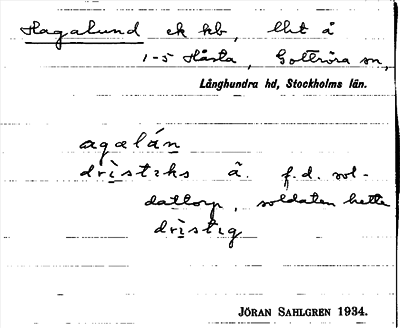 Hagalund ek kb, lht å
1-5 Håsta, Gottröra sn,
Långhundra hd, Stockholms län.
agalún
drìstıks å. f.d. sol-
dattorp, soldaten hette
drìstıg
JÖRAN SAHLGREN 1934.